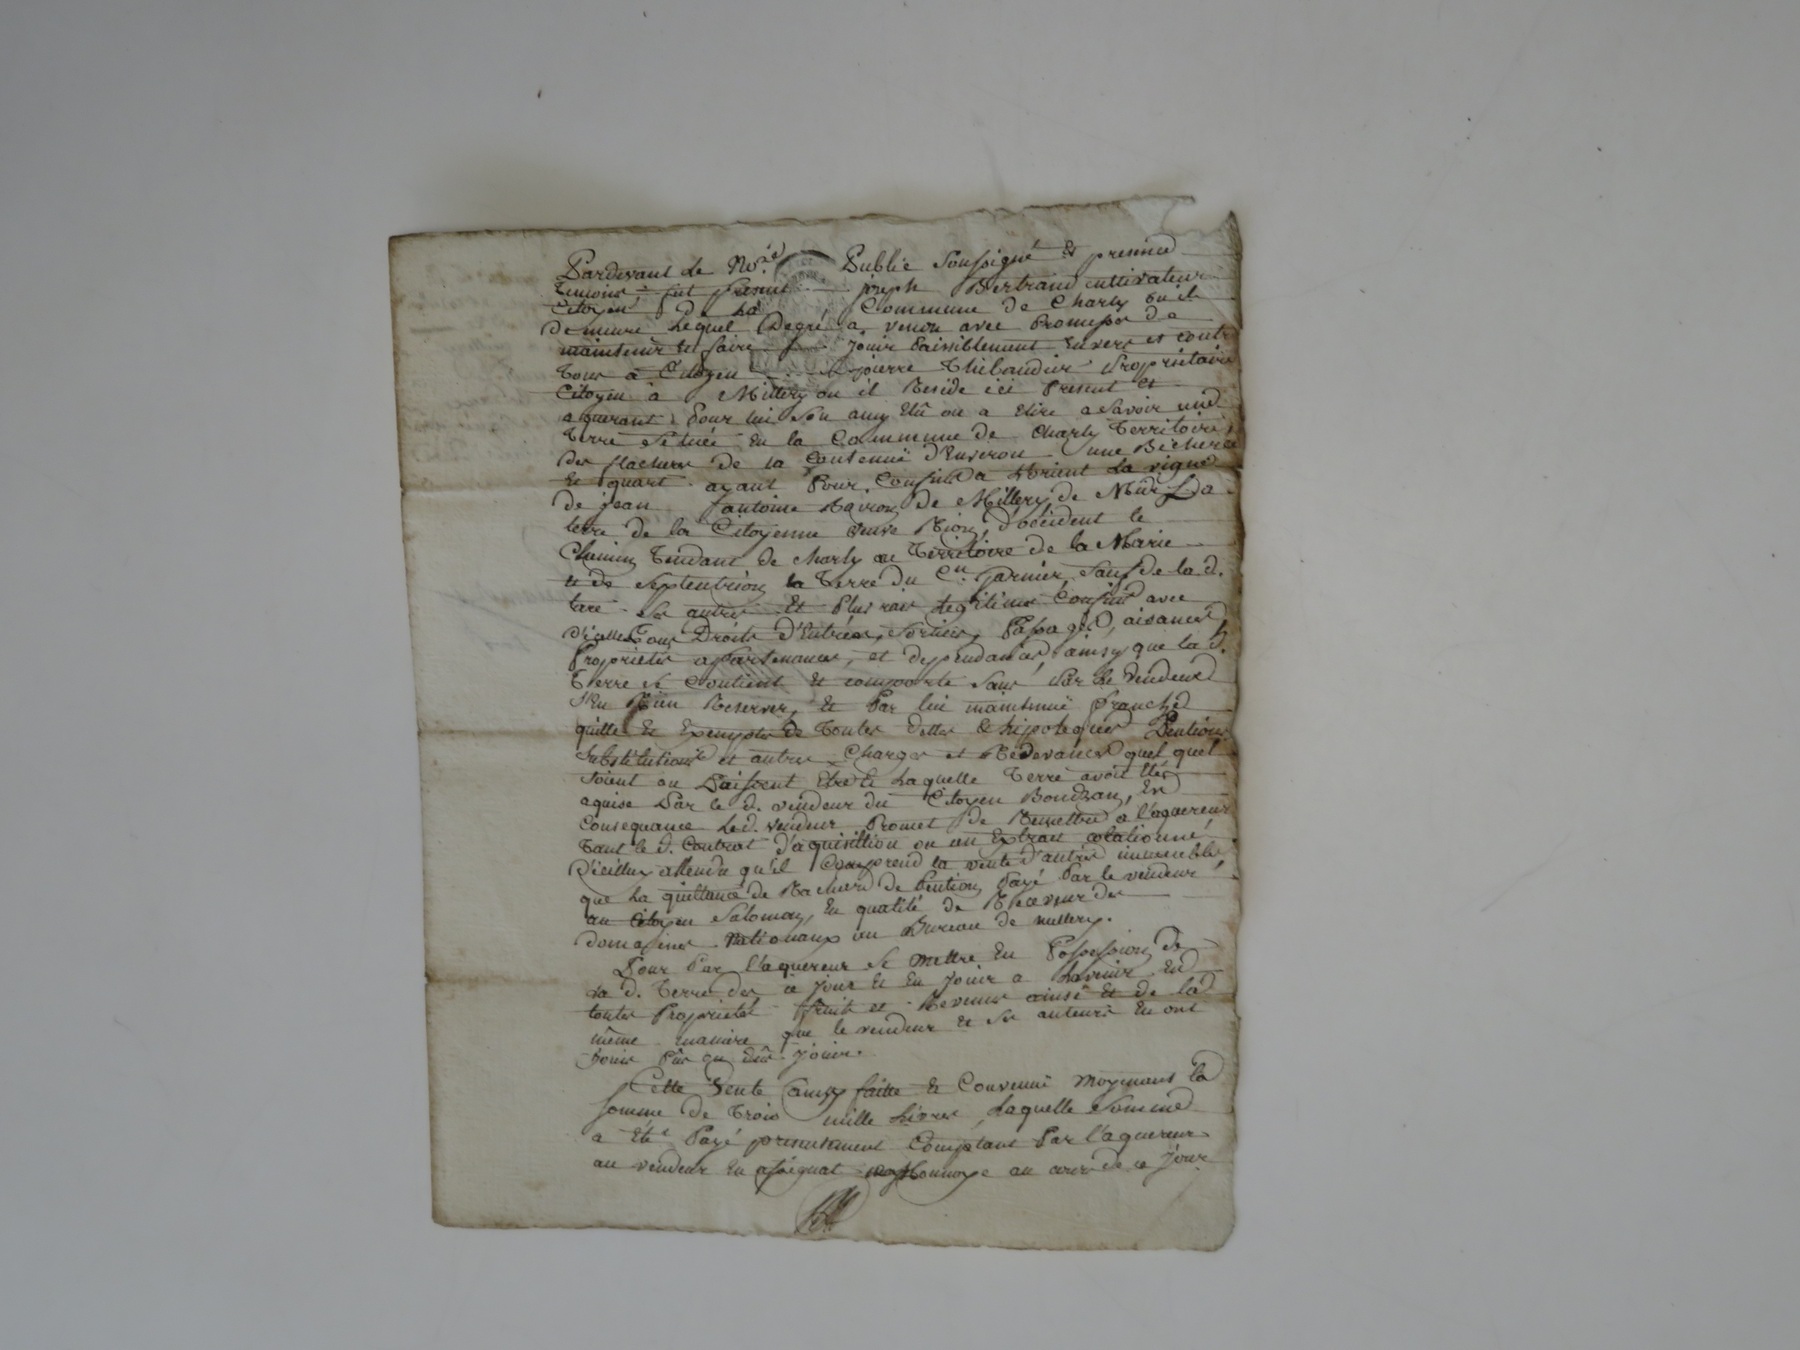 Pardevant le No.re Public Soussigné et presence
temoins fut present joseph Bertrand cultivateur
Citoyen de la Commune de Charly ou il
demeure Lequel Degré a vendu avec Promesse de
maintenir et faire jouir Paissiblement Envers et contre
Tous a Citoyen pierre Thibaudier Propriétaire
Citoyen a Millery ou il Reside ici Present et
aquerant Pour lui Son amy Elû ou a Elire a Savoir une
Terre Située En la Commune de Charly Territoire
des flaches de la Contenuë d'Environ une Bicherée
Et quart ayant Pour Confins a Orient La vigne
de jean antoine Ravion de Millery, de Midi La
terre de la Citoyenne veuve Rion, d'occident le
Chemin Tendant de Charly au Territoire de la Marie
et de Septentrion la Terre du C.en Garnier, Sauf de la d.
terre Ses autres Et Plus vrais Legitimes Confins avec
d'icelle Tous Droits d'Entrées, Sorties, Passages, aisances
Proprietés appartenances, et dependances, ainsy que la d.
Terre Se Contient Et comporte Sans Par le vendeur
S'En Rien Reserver, Et Par lui maintenuë Franche
quitte Et Exempte de Toutes dettes & hipoteques Pentions
Substitutions et autres Charges et Redevances quel quel
Soient ou Puissent Etre Laquelle Terre avoit Eté
aquise Par le d. vendeur du Citoyen Bondran, En
Consequance Led. vendeur Promet de Remettre a l'aquereur
Tant le d. Contrat d'aquisition ou un Extrait colationné
D'icellui attendu qu'il Comprend la vente d'autres immeubles
que La quittance de Rachat de Pention Payé Par le vendeur
au Citoyen Salomon, En qualité de Receveur des
domaines Nationaux au Bureau de millery.
Pour Par l'aquereur Se mettre En Possession de
La d. Terre des ce jour Et En Jouir a Lavenir En
toutes Proprietés fruits et Revenus ainsi Et de la
même maniere que le vendeur Et Ses auteurs En ont
Jouis Pûs ou dûs Jouir.
Cette Vente ainsy faitte Et Convenuë moyenant la
somme de Trois mille Livres, Laquelle Somme
a Eté Payé presentement Comptant Par l'aquereur
au vendeur En assignat Monnoye au cours de ce Jour